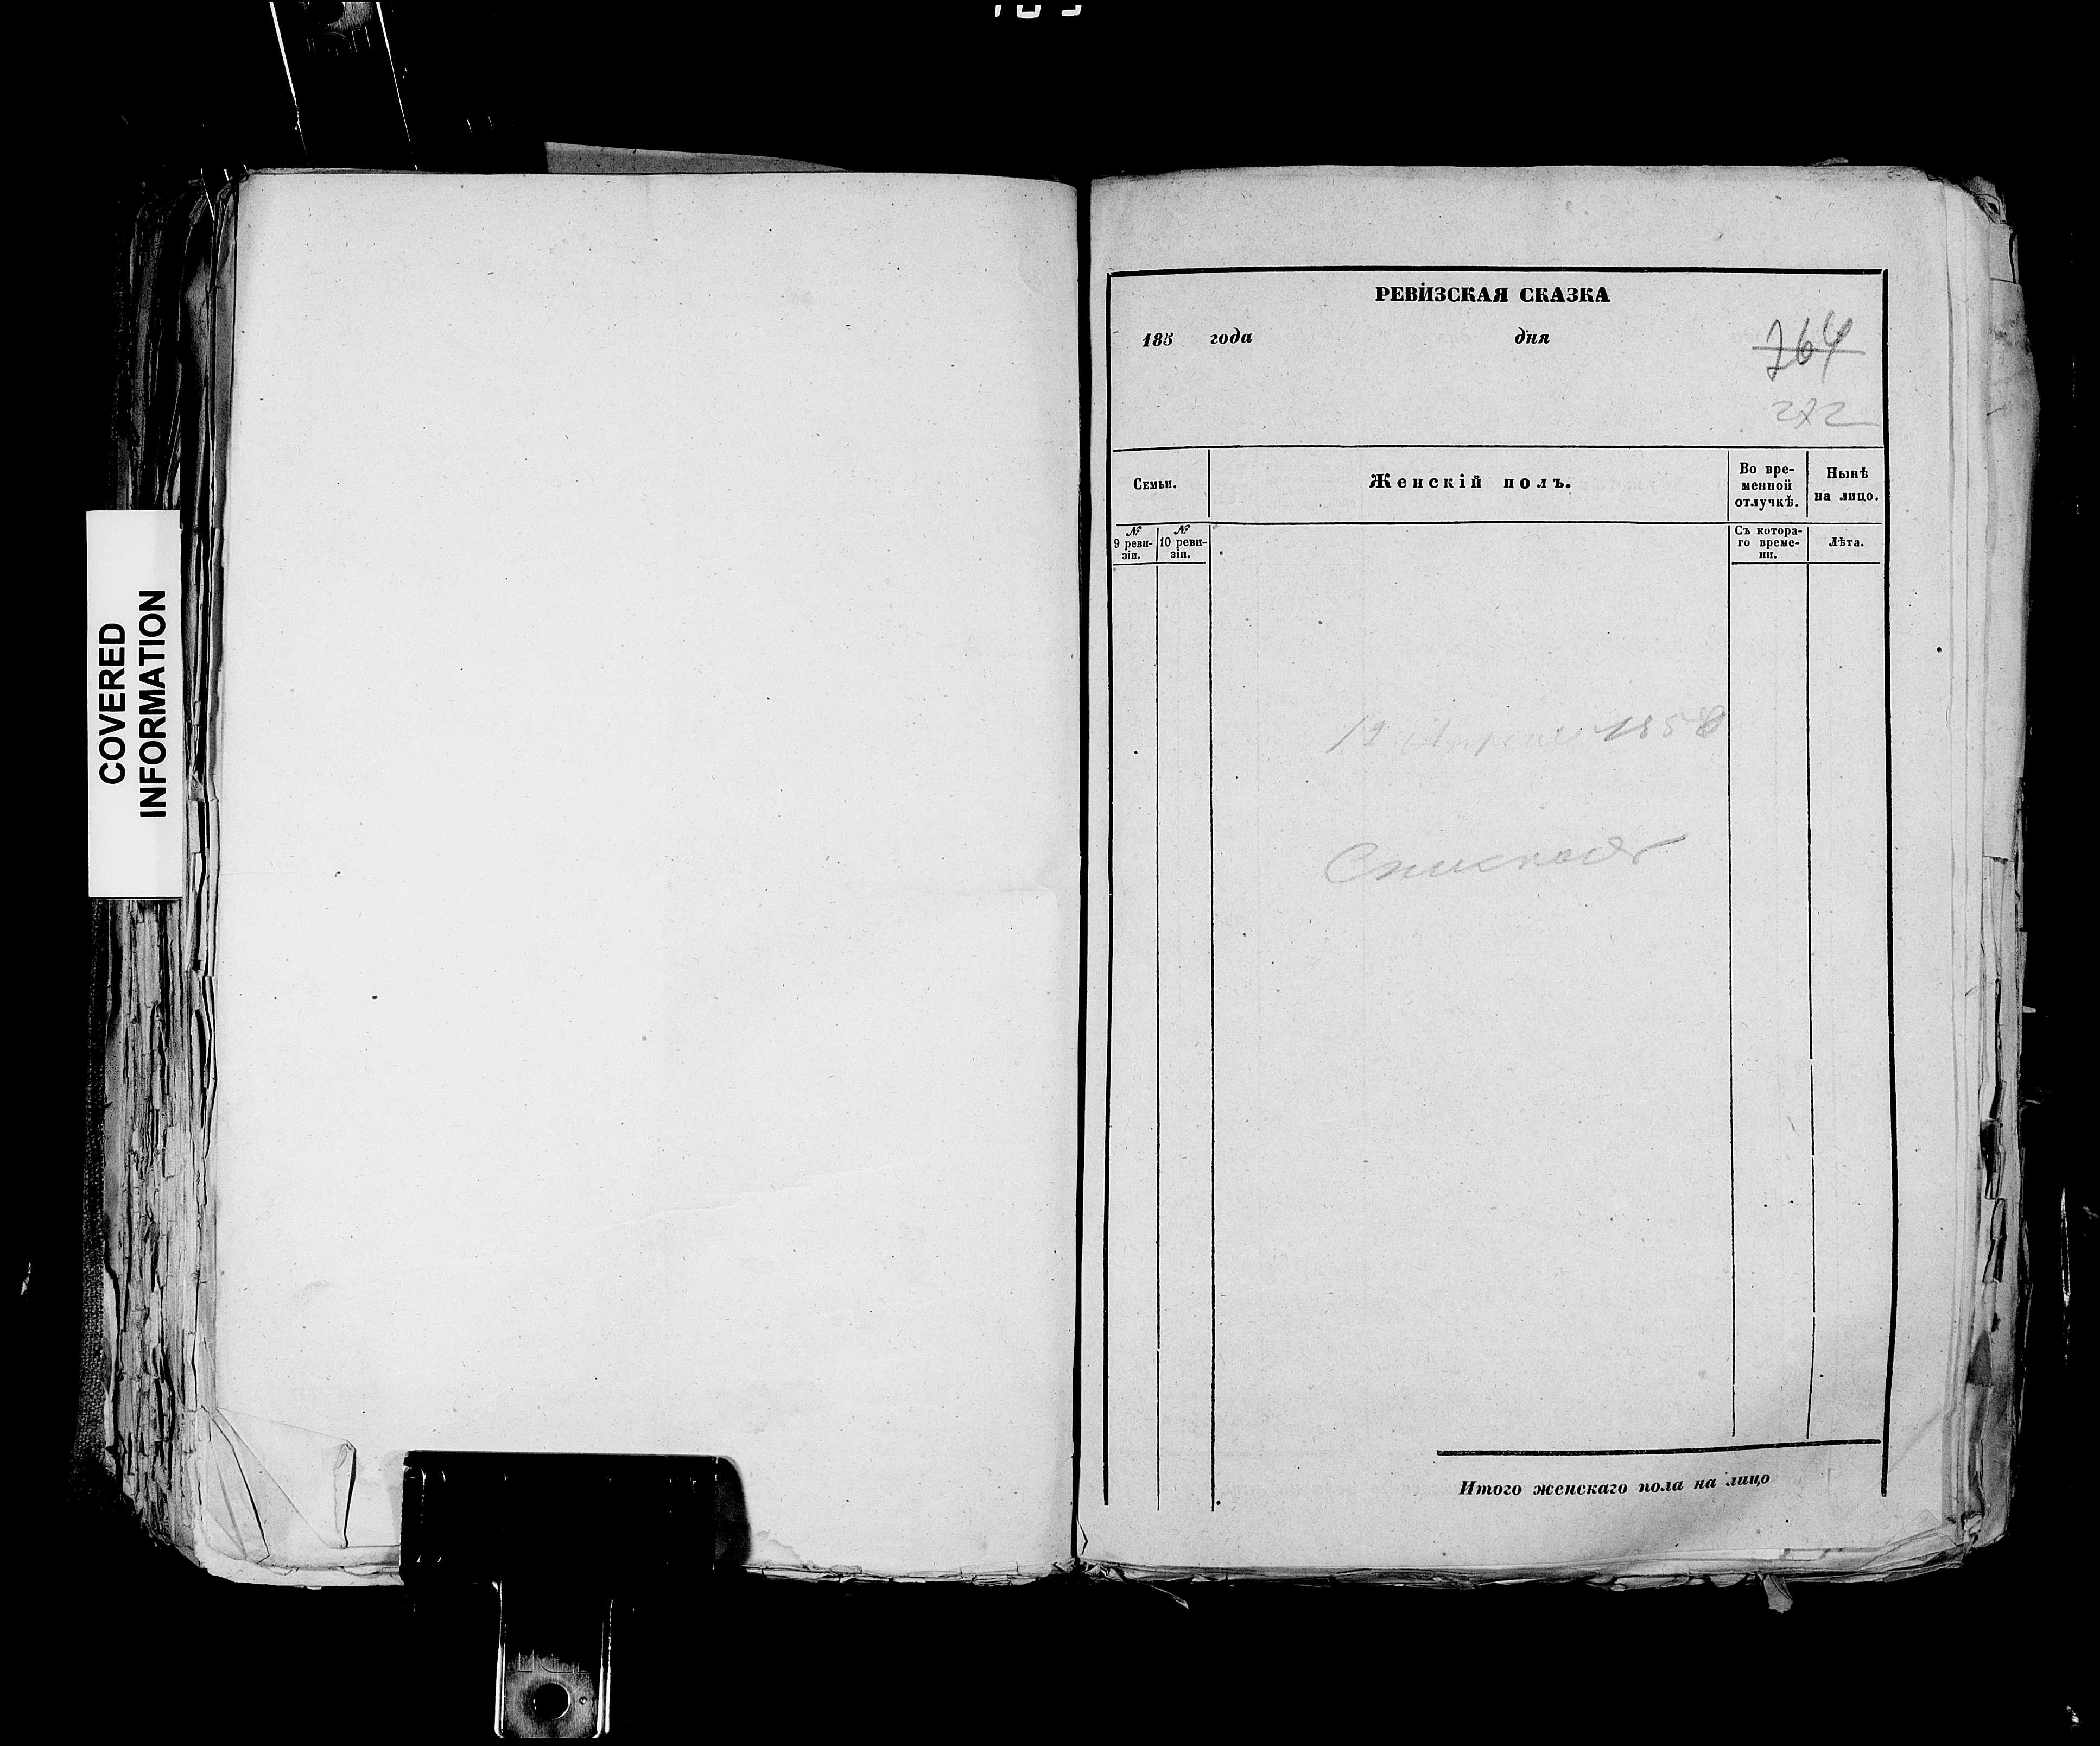 COVERED
INFORMATION
РЕВИЗСКАЯ СКАЗКА
185 года дня
764
272
Семьи.
Женскій полъ.
Во вре-
менной
отлучкѣ.
Нынѣ
на лицо.
№
9 реви-
зіи.
№
10 реви-
зіи.
Съ котора-
го време-
ни.
Лѣта.
1858
Итого женскаго пола на лицо